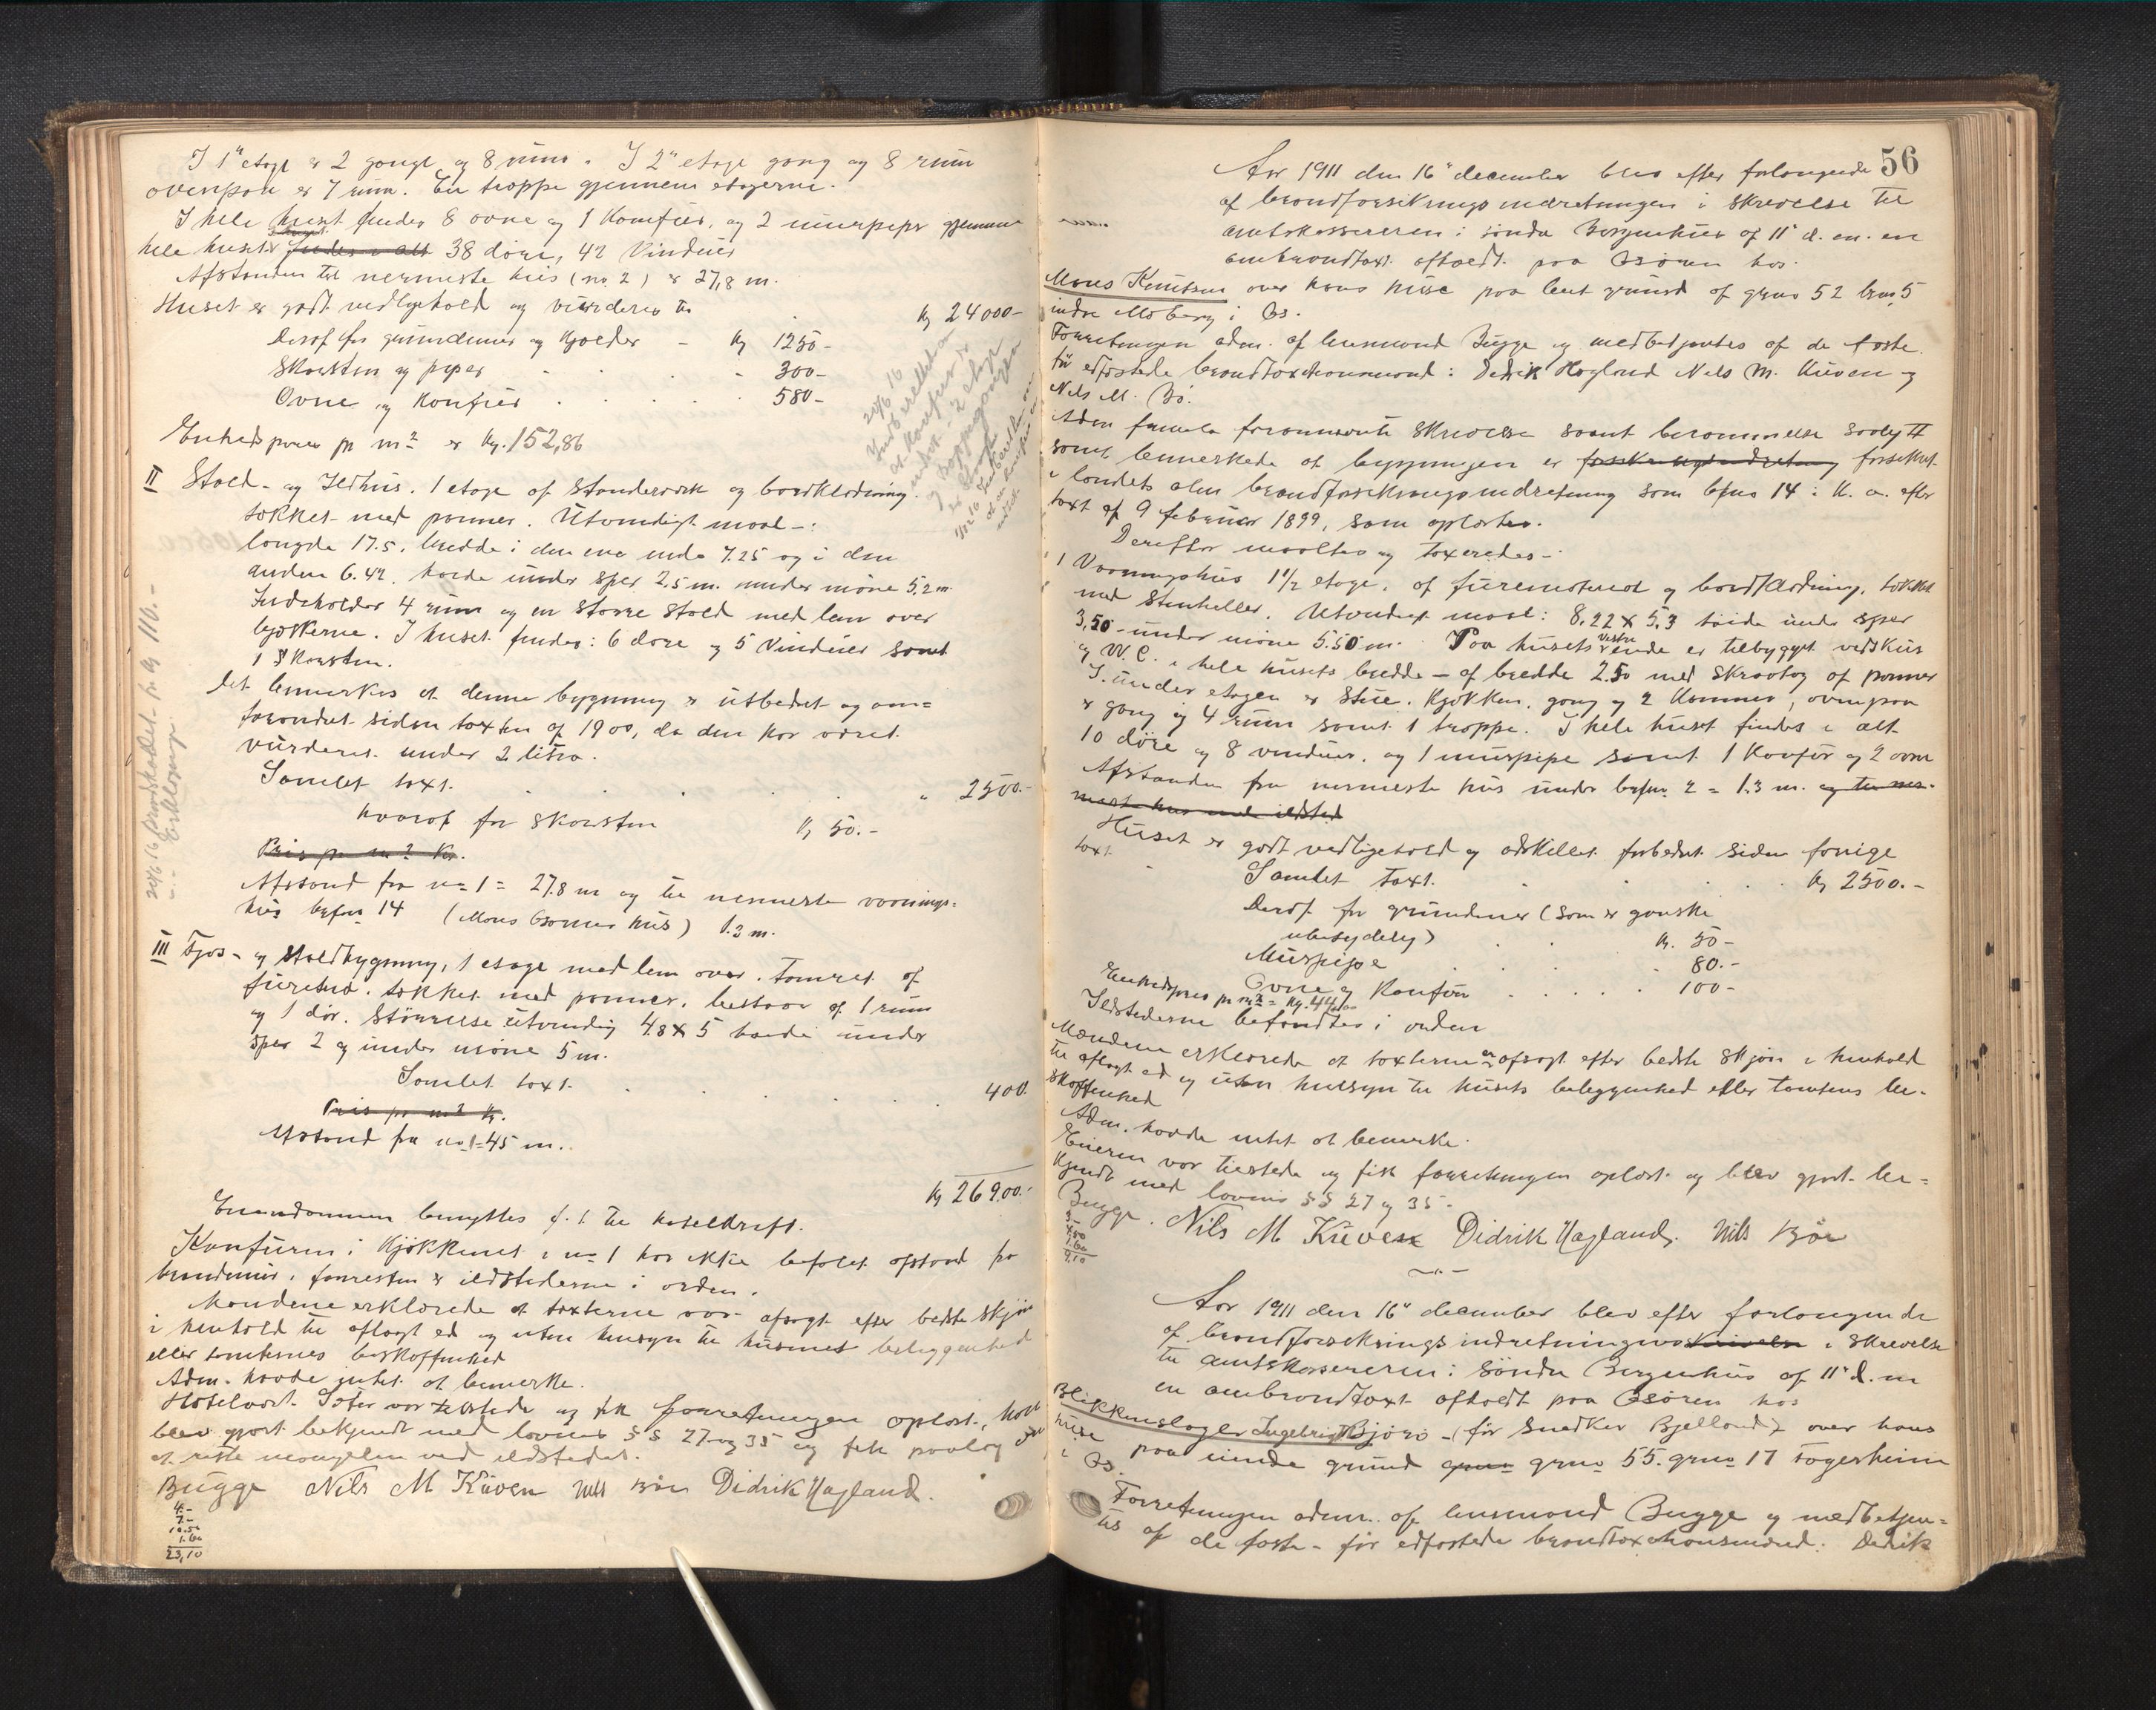 I 1ste etage er 2 gange og 8 rum. I 2den etage gang og 8 rum
ovenpaa er 7 rum. En trappe gjennem etagerne.
I hele huset findes 8 ovne og 1 Komfur, og 2 murpiper gjennem
hele huset findes i alt 38 døre, 42 Vinduer
Afstanden til nermeste hus (no 2) er 27,8 m.
Huset er godt vedligehold og vurderes til Kr 24000-
Deraf for grundmur og Kjelder - Kr 1250-
Skorsten og piper - 300-
Ovne og Komfur 580-
Enhedsprisen pr m2 er Kr. 152,86
II Stald- og Ildhus. 1 etage af standerværk og bordklædning.
tækket med panner. Utvendigt maal-:
længde 17.5. bredde i den ene ende 7.25 og i den
anden 6.42. høide under sper 2.5 m. under møne 5,2 m.
Indeholder 4 rum og en større stald med lem over
bjelkerne. I huset findes: 6 døre og 5 Vinduer samt
1 Skorsten.
Det bemerkes at denne bygning er utbedret og om=
forandret siden taxten af 1900, da den har været
vurderet under 2 litra.
Samlet taxt. " 2500.-
hvoraf for skorsten Kr 50.-
Pris pr m2 Kr.
Afstand fra no 1 = 27.8 m og til nermeste vaanings=
hus byfno 14 (Mons hus) 1.3 m.
III Fjøs- og staldbygning, 1 etage med lem over. Tømret af
furetræ. tækket med panner. bestaar af 1 rum
og 1 dør. Størrelse utvendig 4.8 x 5 høide under
sper 2 og under møne 5 m.
Samlet taxt. 400.
Pris pr m2 Kr.
Afstand fra no 1 = 45 m.
Kr 26900.-
Eiendommen benyttes f. t. til hoteldrift.
Komfuren i Kjøkkenet i no 1 har ikke befalet afstand fra
brandmur, forresten er ildstederne i orden.
Mændene erklærede at taxterne var afsagt efter bedste skjøn
i henhold til aflagt ed og uten hensyn til husenes beliggenhed
eller tomternes beskaffenhed
Adm. havde intet at bemerke.
Hotelvært tilstede og fik forretningen oplæst,
blev gjort bekjendt med lovens §§ 27 og 35 og fik paalæg om
at rette mangelen ved ildstedet.
Bugge Nils M Kuven Nils Bøe Didrik Hagland.
4.-
7.-
10.50
1.60
23,10
20/6 16 110.-
56
Aar 1911 den 16de december blev efter forlangende
af brandforsikringsindretningen i skrivelse til
amtskassereren i søndre Bergenhus af 11te d. m. en
ombrandtaxt afholdt paa Osøren hos
Mons Knutsen over hans huse paa leiet grund af gno 52 bno 5
indre Moberg i Os.
Forretningen adm. af lensmand Bugge og medbetjentes af de faste
før edfæstede brandtaxtmænd: Didrik Hagland Nels M. Kuven og
Nels M. Bø.
Adm fremla forannævnte skrivelse samt berammelse
samt bemerkede at bygningen er forsikringsindretning forsikret
i landets alm brandforsikringsindretning som bfno 14 i K. a. efter
taxt af 9 februar 1899, som oplæstes.
Derefter maaltes og taxeredes-:
1 Vaaningshus 1 1/2 etage, af furemateriel og bordklædning, tækket
med stenheller. Utvendigt maal: 8.22 x 5.3 høide under sper
3,50 under møne 5.50 m. Paa husets vestre ende er tilbygget vedskur
og W.C. i hele husets bredde - af bredde 2.50 med skraatag af panner
I underetagen er stue, kjøkken, gang og 2 Kammer, ovenpaa
er gang og 4 rum samt 1 trappe. I hele huset findes i alt
10 døre og 8 vinduer. og 1 murpipe samt 1 Komfur og 2 ovne
Afstanden fra nermeste hus under byfno 2 = 1.3 m. og til ner-
meste hus med ildsted
Huset er godt vedligehold og adskillet forbedret siden forrige
taxt. - Samlet taxt. Kr 2500.-
Deraf for grundmur (som er ganske
ubetydelig) Kr. 50-
Murpipe 80.-
Ovne og Komfur 100-
Enhedspris pr m2 = Kr. 44,
Ildstederne befandtes i orden
Mændene erklærede at taxterne er afsagt efter bedste skjøn i henhold
til aflagt ed og uten hensyn til husets beliggenhed eller tomtens be-
skaffenhed
Adm. havde intet at bemerke.
Eieren var tilstede og fik forretningen oplæst og blev gjort be=
kjendt med lovens §§ 27 og 35-
Bugge. Nils M Kuven Didrik Hagland. Nils Bøe
Aar 1911 den 16de december blev efter forlangende
af brandforsikringsindretningens skrivelse i skrivelse
til amtskassereren i søndre Bergenhus af 11te d. m
en ombrandtaxt afholdt paa Osøren hos
Blikkenslager Ingebrigt Bjørø - (før snedker Bjelland) over hans
huse paa grund gno 55. bno 17 Fagerheim
i Os.
Forretningen adm. af lensmand Bugge og medbetjen=
tes af de faste - før edfæstede brandtaxtmænd: Didrik